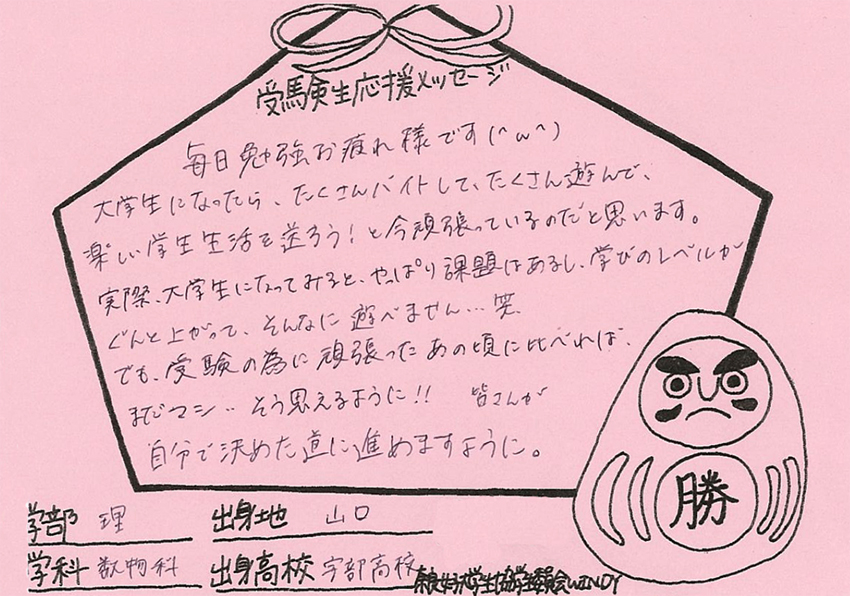 受験生応援メッセージ
毎日勉強お疲れ様です(^ω^)
大学生になったら、たくさんバイトして、たくさん遊んで、
楽しい学生生活を送ろう!と今頑張っているのだと思います。
実際、大学生になってみると、やっぱり課題はあるし、学びのレベルが
ぐんと上がって、そんなに遊べません…笑
でも、受験の為に頑張ったあの頃に比べれば、
まだマシ‥そう思えるように!! 皆さんが
自分で決めた道に進めますように。
勝
学部 理 出身地 山口
学科 数物科 出身高校 宇部高校
奈良女子大学生協学生委員会WINDY